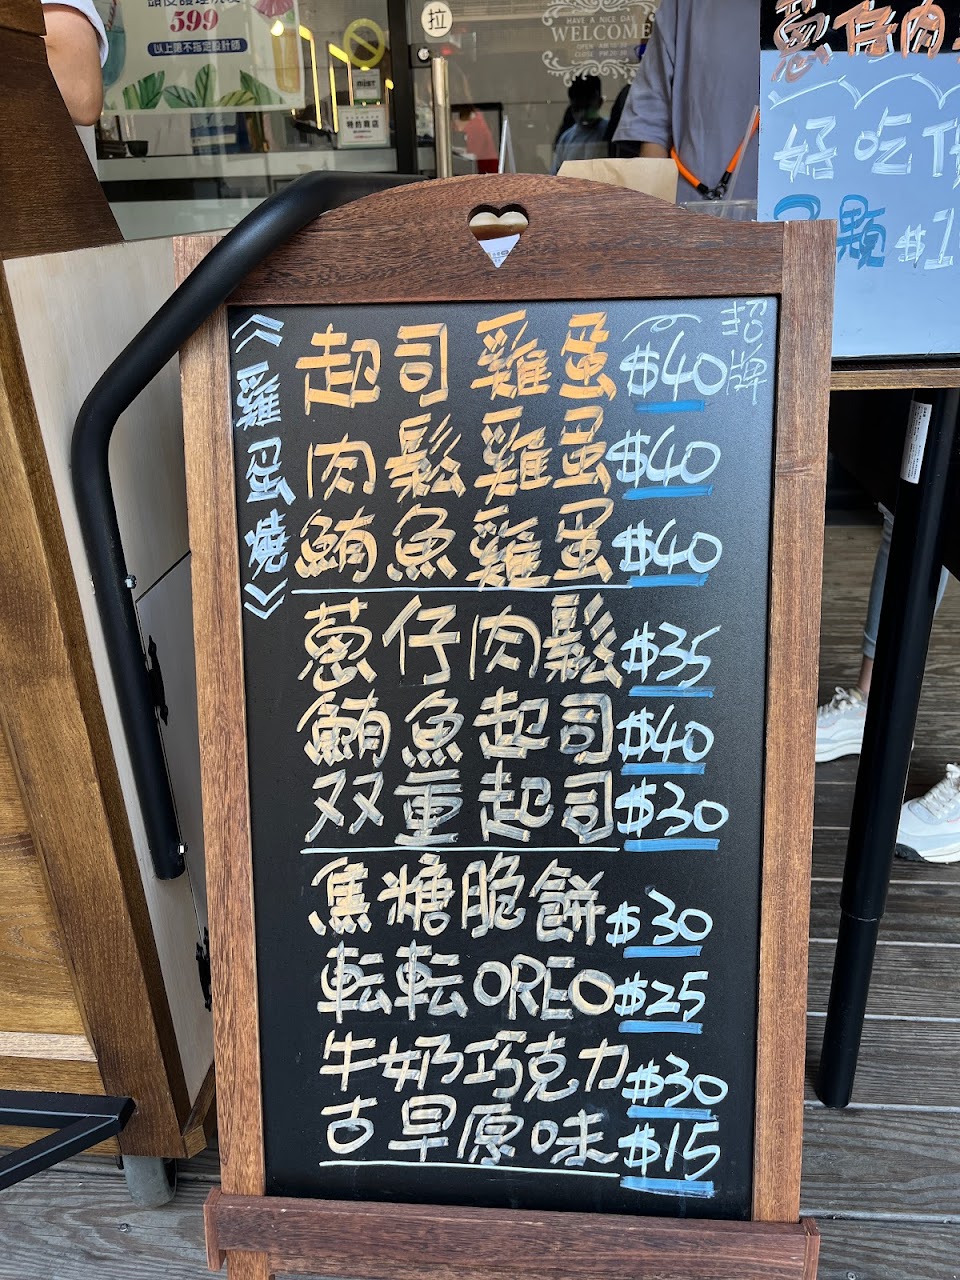 599
以上限不指定設計師
拉
HAVE A NICE DAY
WELCOME
特約商店
蔥仔肉
好吃
顆 $1
招牌
《雞蛋燒》
起司雞蛋 $40
肉鬆雞蛋 $40
鮪魚雞蛋 $40
蔥仔肉鬆 $35
鮪魚起司 $40
双重起司 $30
焦糖脆餅 $30
転転OREO $25
牛奶巧克力 $30
古早原味 $15